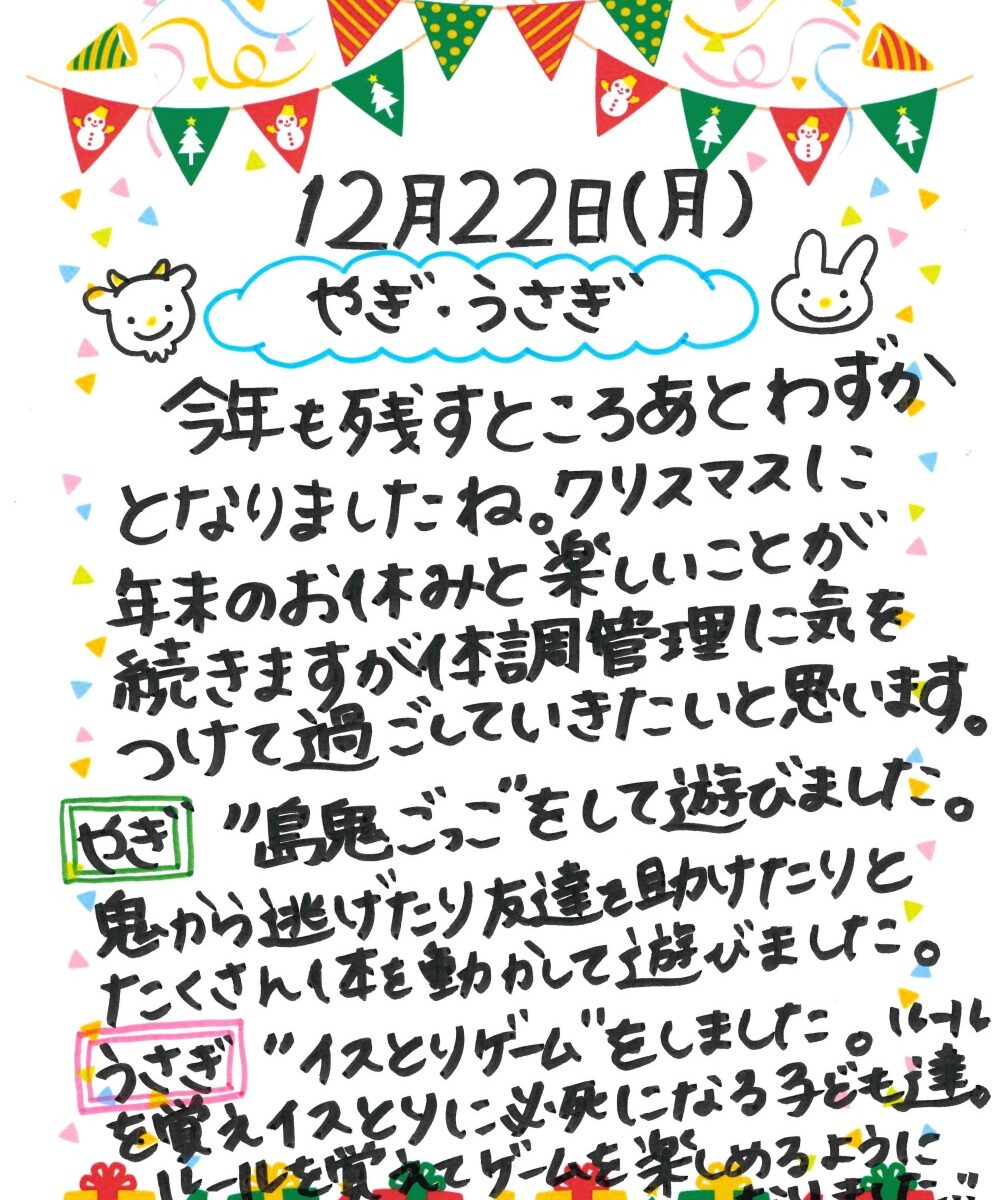 12月22日(月)
やぎ・うさぎ
今年も残すところあとわずか
となりましたね。クリスマスに
年末のお休みと楽しいことが
続きますが体調管理に気を
つけて過ごしていきたいと思います。
やぎ "島鬼ごっこ"をして遊びました。
鬼から逃げたり友達を助けたりと
たくさん体を動かして遊びました。
うさぎ "イスとりゲーム"をしました。ルール
を覚えイスとりに必死になる子ども達。
ルールを覚えてゲームを楽しめるように
なりました